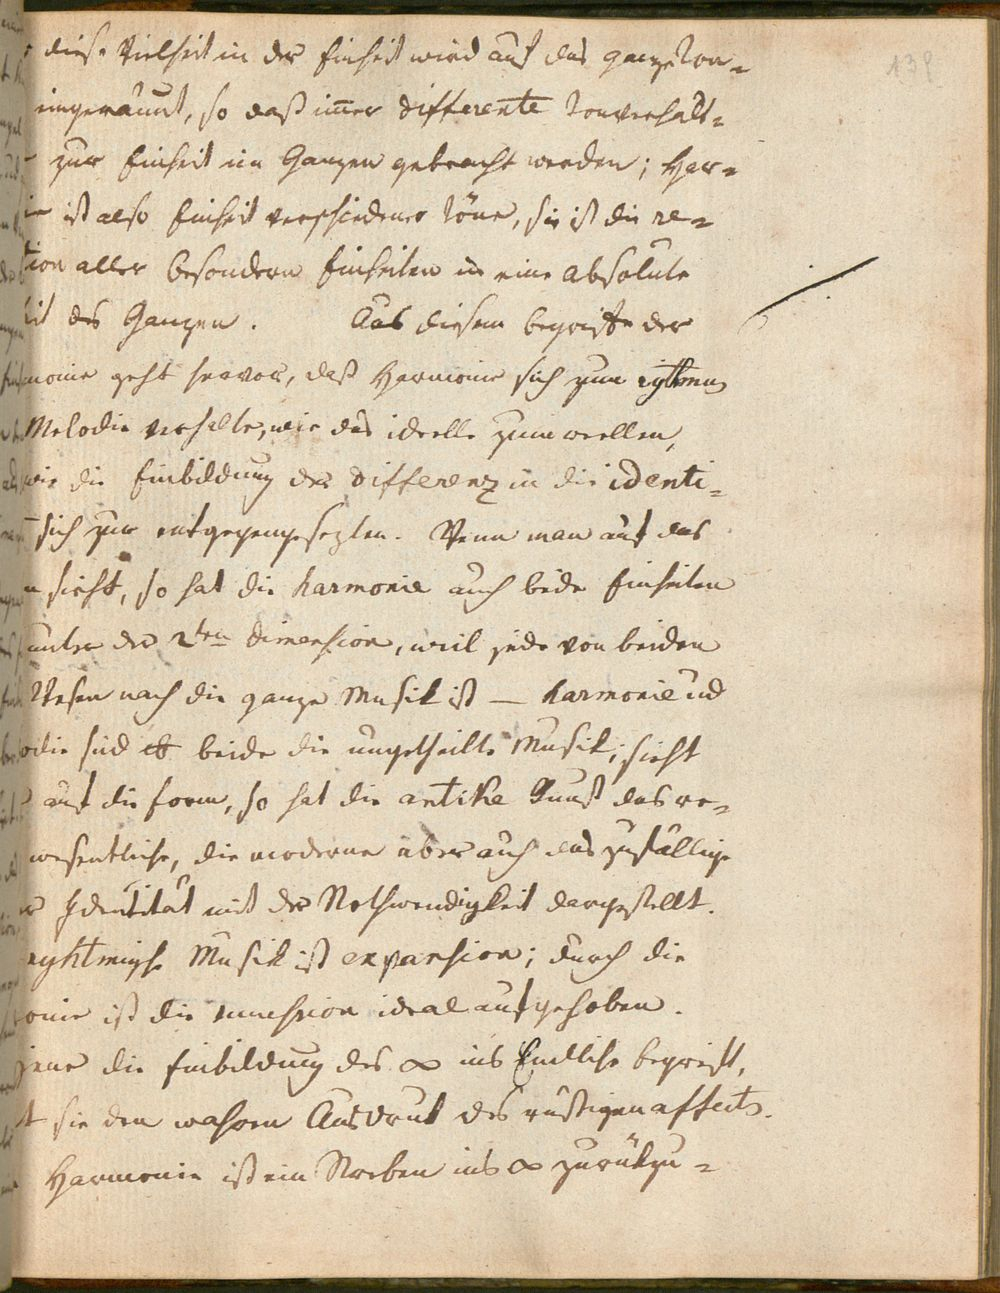 139
diese Vielheit in der Einheit wird auf das ganze Ton-
eingeräumt, so daß im̅er differente Tonverhält-
zur Einheit im Ganzen gebracht werden; Har-
ist also Einheit verschiedener Töne, sie ist die re-
tion aller besondern Einheiten in eine absolute
des Ganzen. Aus diesem begriffe der
monie geht hervor, daß Harmonie sich zum rythmus
Melodie verhalte, wie das ideelle zum reellen,
wie die Einbildung der Differenz in die identi-
sich zur entgegengesezten. Wenn man auf das
sieht, so hat die harmonie auch beide Einheiten
unter der 2ten Dimension, weil jede von beiden
Wesen nach die ganze Musik ist — harmonie und
odie sind beide die ungetheilte Musik; sieht
auf die form, so hat die antike Kunst das re-
wesentliche, die moderne aber auch das zufällige
Identität mit der Nothwendigkeit dargestellt.
ryhtmische Musik ist expansion; durch die
onie ist die ideal aufgehoben.
jene die Einbildung des ∞ ins Endliche begreift,
sie den wahren Ausdruk des rüstigen affects.
Harmonie ist ein Streben ins ∞ zurükzu-